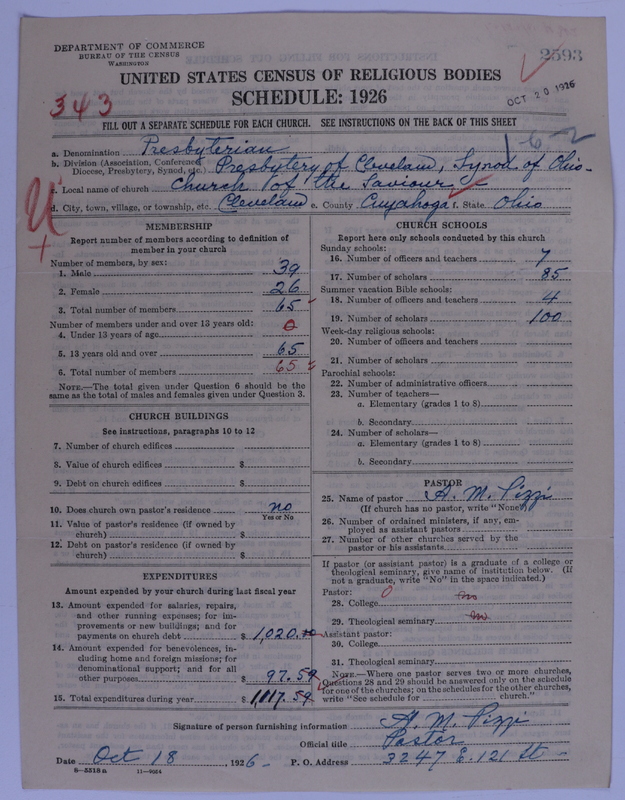 DEPARTMENT OF COMMERCE
BUREAU OF THE CENSUS
WASHINGTON
2593
UNITED STATES CENSUS OF RELIGIOUS BODIES
SCHEDULE: 1926
343
OCT 20 1926
FILL OUT A SEPARATE SCHEDULE FOR EACH CHURCH. SEE INSTRUCTIONS ON THE BACK OF THIS SHEET
1-6-2
a. Denomination Presbyterian
b. Division (Association, Conference, Diocese, Presbytery, Synod, etc.) Presbytery of Cleveland, Synod of Ohio
c. Local name of church Church of the Saviour
d. City, town, village, or township, etc. Cleveland e. County Cuyahoga f. State Ohio
MEMBERSHIP
Report number of members according to definition of
member in your church
Number of members, by sex:
1. Male 39
2. Female 26
3. Total number of members 65
Number of members under and over 13 years old:
4. Under 13 years of age 0
5. 13 years old and over 65
6. Total number of members 65
NOTE.—The total given under Question 6 should be the
same as the total of males and females given under Question 3.
CHURCH BUILDINGS
See instructions, paragraphs 10 to 12
7. Number of church edifices
8. Value of church edifices $
9. Debt on church edifices $
10. Does church own pastor's residence no
Yes or No
11. Value of pastor's residence (if owned by
church) $
12. Debt on pastor's residence (if owned by
church) $
EXPENDITURES
Amount expended by your church during last fiscal year
13. Amount expended for salaries, repairs,
and other running expenses; for im-
provements or new buildings; and for
payments on church debt $ 1,020.
14. Amount expended for benevolences, in-
cluding home and foreign missions; for
denominational support; and for all
other purposes $ 97.59
15. Total expenditures during year $ 1,117.59
CHURCH SCHOOLS
Report here only schools conducted by this church
Sunday schools:
16. Number of officers and teachers 7
17. Number of scholars 85
Summer vacation Bible schools:
18. Number of officers and teachers 4
19. Number of scholars 100
Week-day religious schools:
20. Number of officers and teachers
21. Number of scholars
Parochial schools:
22. Number of administrative officers
23. Number of teachers—
a. Elementary (grades 1 to 8)
b. Secondary
24. Number of scholars—
a. Elementary (grades 1 to 8)
b. Secondary
PASTOR
25. Name of pastor A. M. Pizzi
(If church has no pastor, write "None")
26. Number of ordained ministers, if any, em-
ployed as assistant pastors
27. Number of other churches served by the
pastor or his assistants
If pastor (or assistant pastor) is a graduate of a college or
theological seminary, give name of institution below. (If
not a graduate, write "No" in the space indicated.)
Pastor: 0
28. College no
29. Theological seminary no
Assistant pastor:
30. College
31. Theological seminary
NOTE.—Where one pastor serves two or more churches,
Questions 28 and 29 should be answered only on the schedule
for one of the churches; on the schedules for the other churches,
write "See schedule for church."
Signature of person furnishing information A. M. Pizzi
Official title Pastor
Date Oct 18, 1926 P. O. Address 3247 E. 121 St
8—5518a 11—9064